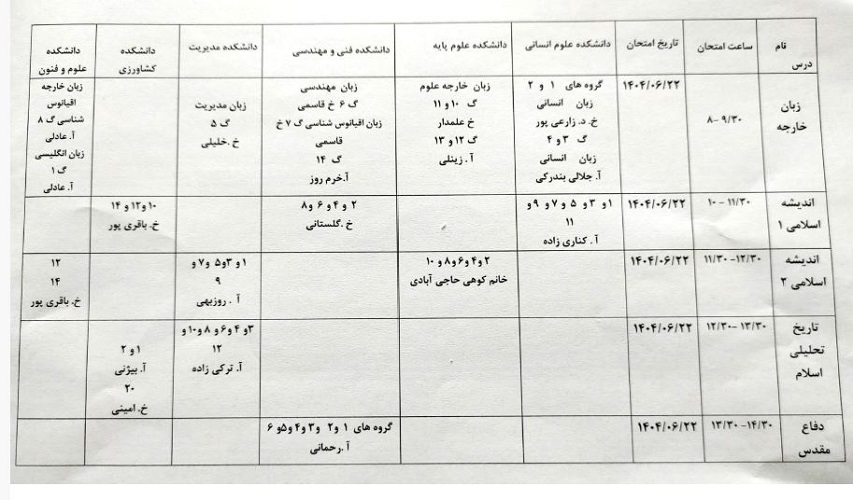 نام درس
ساعت امتحان
تاریخ امتحان
دانشکده علوم انسانی
دانشکده علوم پایه
دانشکده فنی و مهندسی
دانشکده مدیریت
دانشکده کشاورزی
دانشکده علوم و فنون
زبان خارجه
۸- ۹/۳۰
۱۴۰۴/۰۶/۲۲
گروه های ۱ و ۲
زبان انسانی
خ. د. زارعی پور
گ ۳ و ۴
زبان انسانی
آ. جلالی بندرکی
زبان خارجه علوم
گ ۱۰ و ۱۱
خ علمدار
گ ۱۲ و ۱۳
آ. زینلی
زبان مهندسی
گ ۶ خ قاسمی
زبان اقیانوس شناسی گ ۷ خ
قاسمی
گ ۱۴
آ.خرم روز
زبان مدیریت
گ ۵
خ .خلیلی
زبان خارجه
اقیانوس
شناسی گ ۸
آ. عادلی
زبان انگلیسی
گ ۱
آ. عادلی
اندیشه
اسلامی ۱
۱۰ - ۱۱/۳۰
۱۴۰۴/۰۶/۲۲
۱و ۳ و ۵ و ۷ و ۹ و
۱۱
آ . کناری زاده
۲ و ۴ و ۶ و ۸
خ .گلستانی
۱۰ و ۱۲ و ۱۴
خ. باقری پور
اندیشه
اسلامی ۲
۱۱/۳۰ -۱۲/۳۰
۱۴۰۴/۰۶/۲۲
۲ و ۴ و ۶ و ۸ و ۱۰
خانم کوهی حاجی آبادی
۱ و ۳و ۵ و ۷ و
۹
آ . روزبهی
۱۲
۱۴
خ. باقری پور
تاریخ
تحلیلی
اسلام
۱۲/۳۰ -۱۳/۳۰
۱۴۰۴/۰۶/۲۲
۳و ۴ و ۶ و ۸ و ۱۰ و
۱۲
آ. ترکی زاده
۱ و ۲
آ. بیژنی
۲۰
خ. امینی
دفاع
مقدس
۱۳/۳۰ -۱۴/۳۰
۱۴۰۴/۰۶/۲۲
گروه های ۱ و ۲ و ۳ و ۴ و ۵ و ۶
آ .رحمانی